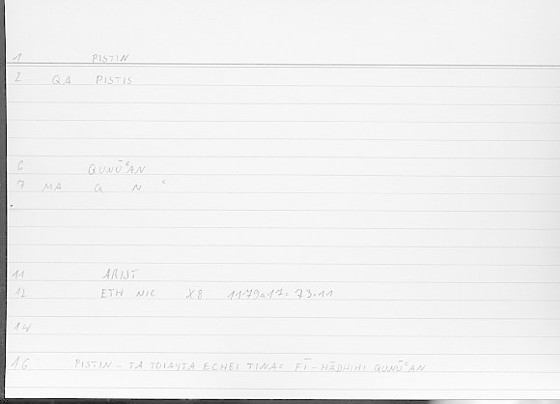 1 PISTIN
2 QA PISTIS
6 QUNŪʿAN
7 MA Q N ʿ
11 ARIST
12 ETH NIC X8 1179a17: 73.11
14
16 PISTIN - TA TOIAYTA ECHEI TINAC FĪ-HĀDHIHI QUNŪʿAN